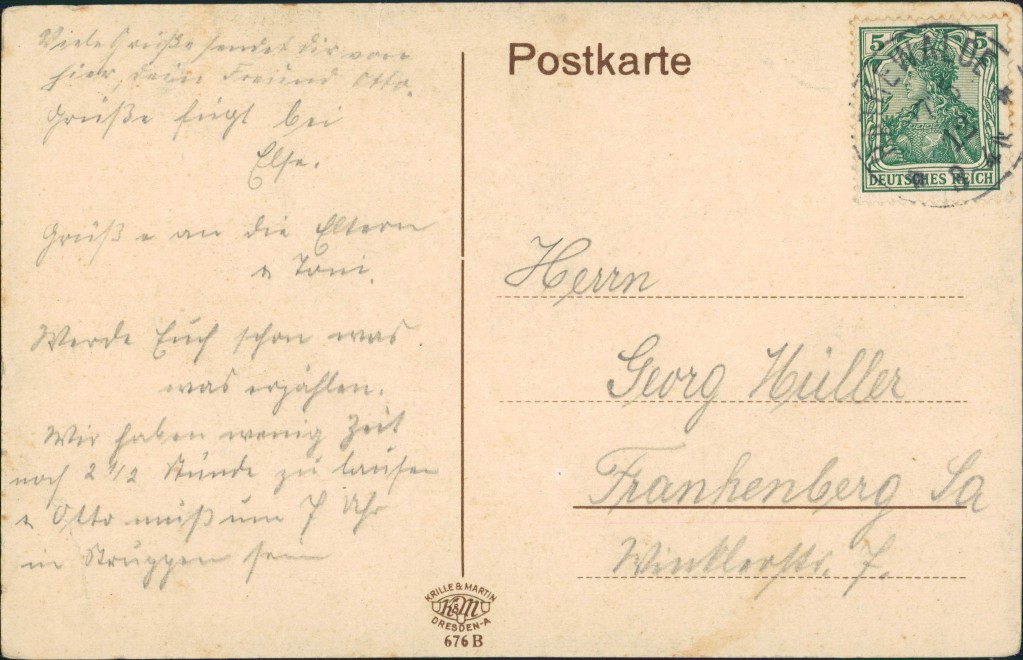 Viele Grüße sendet Dir von
hier, dein Freund Otto.
Grüße fügt bei
Else.
Grüße an die Eltern
u Toni.
Werde Euch schon was
was erzählen.
Wir haben wenig Zeit
noch 2 1/2 Stunde zu laufen
u Otto muß um 7 Uhr
in Struppen sein
Postkarte
5 5
DEUTSCHES REICH
12
Herrn
Georg Müller
Frankenberg Sa
Winklerstr. 7.
KRILLE & MARTIN
K&M
DRESDEN-A
676 B